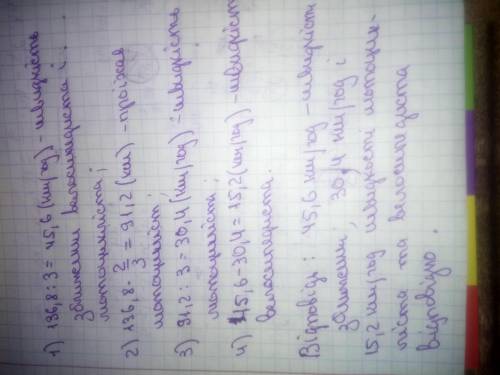 1) 136,8 : 3 = 45,6 (км/год) - швидкість
зближення велосипедиста і
мотоцикліста;
2) 136,8 · 2/3 = 91,2 (км) - проїхав
мотоцикліст;
3) 91,2 : 3 = 30,4 (км/год) - швидкість
мотоцикліста;
4) 45,6 - 30,4 = 15,2 (км/год) - швидкість
велосипедиста.
Відповідь: 45,6 км/год - швидкість
зближення, 30,4 км/год і
15,2 км/год швидкості мотоцик-
ліста та велосипедиста
відповідно.